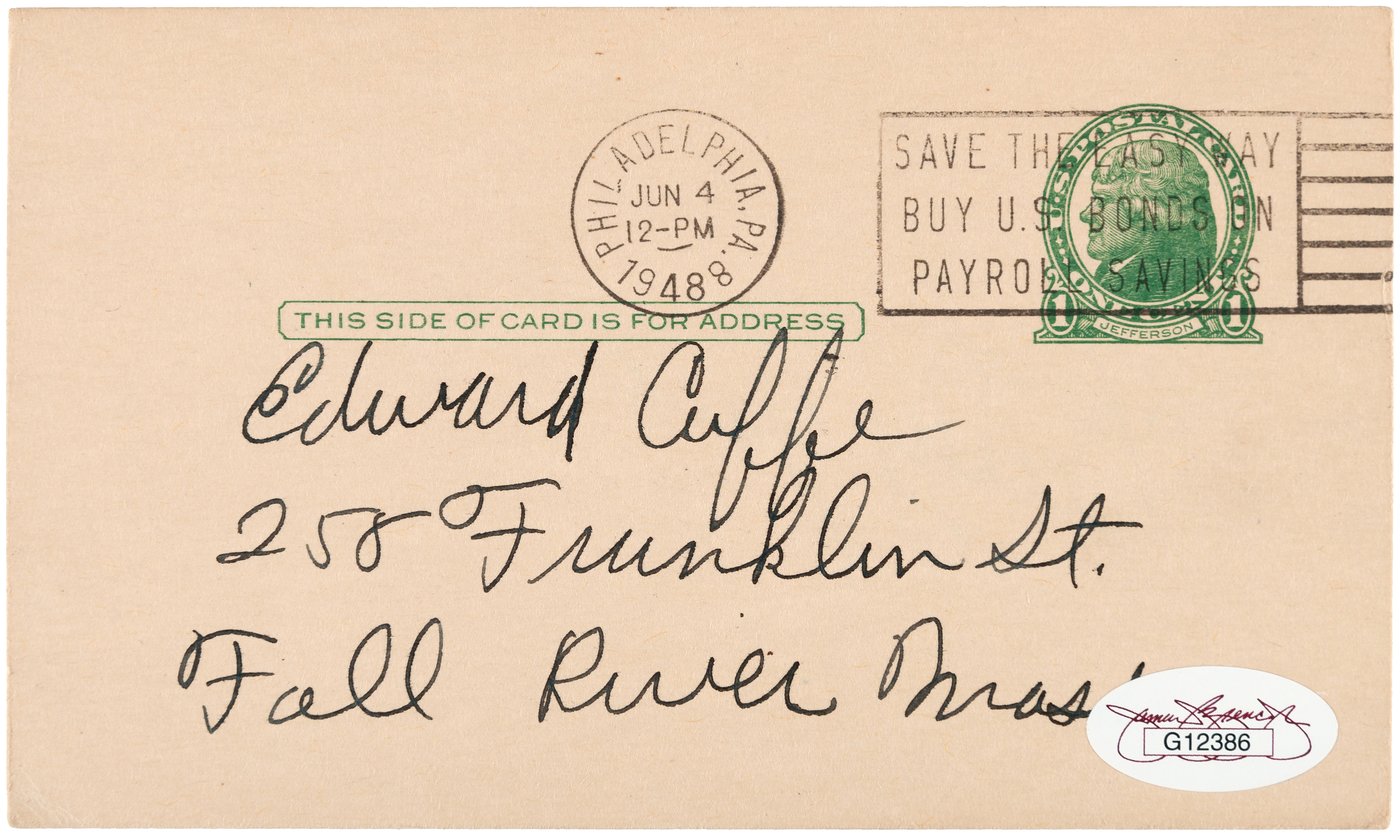 PHILADELPHIA, PA. 8
JUN 4
12-PM
1948
SAVE THE EASY WAY
BUY U.S. BONDS ON
PAYROLL SAVINGS
U.S. POSTAL CARD
1 ONE CENT 1
JEFFERSON
THIS SIDE OF CARD IS FOR ADDRESS
Edward Cuffe
258 Franklin St.
Fall River Mass
James Spence Jr
G12386